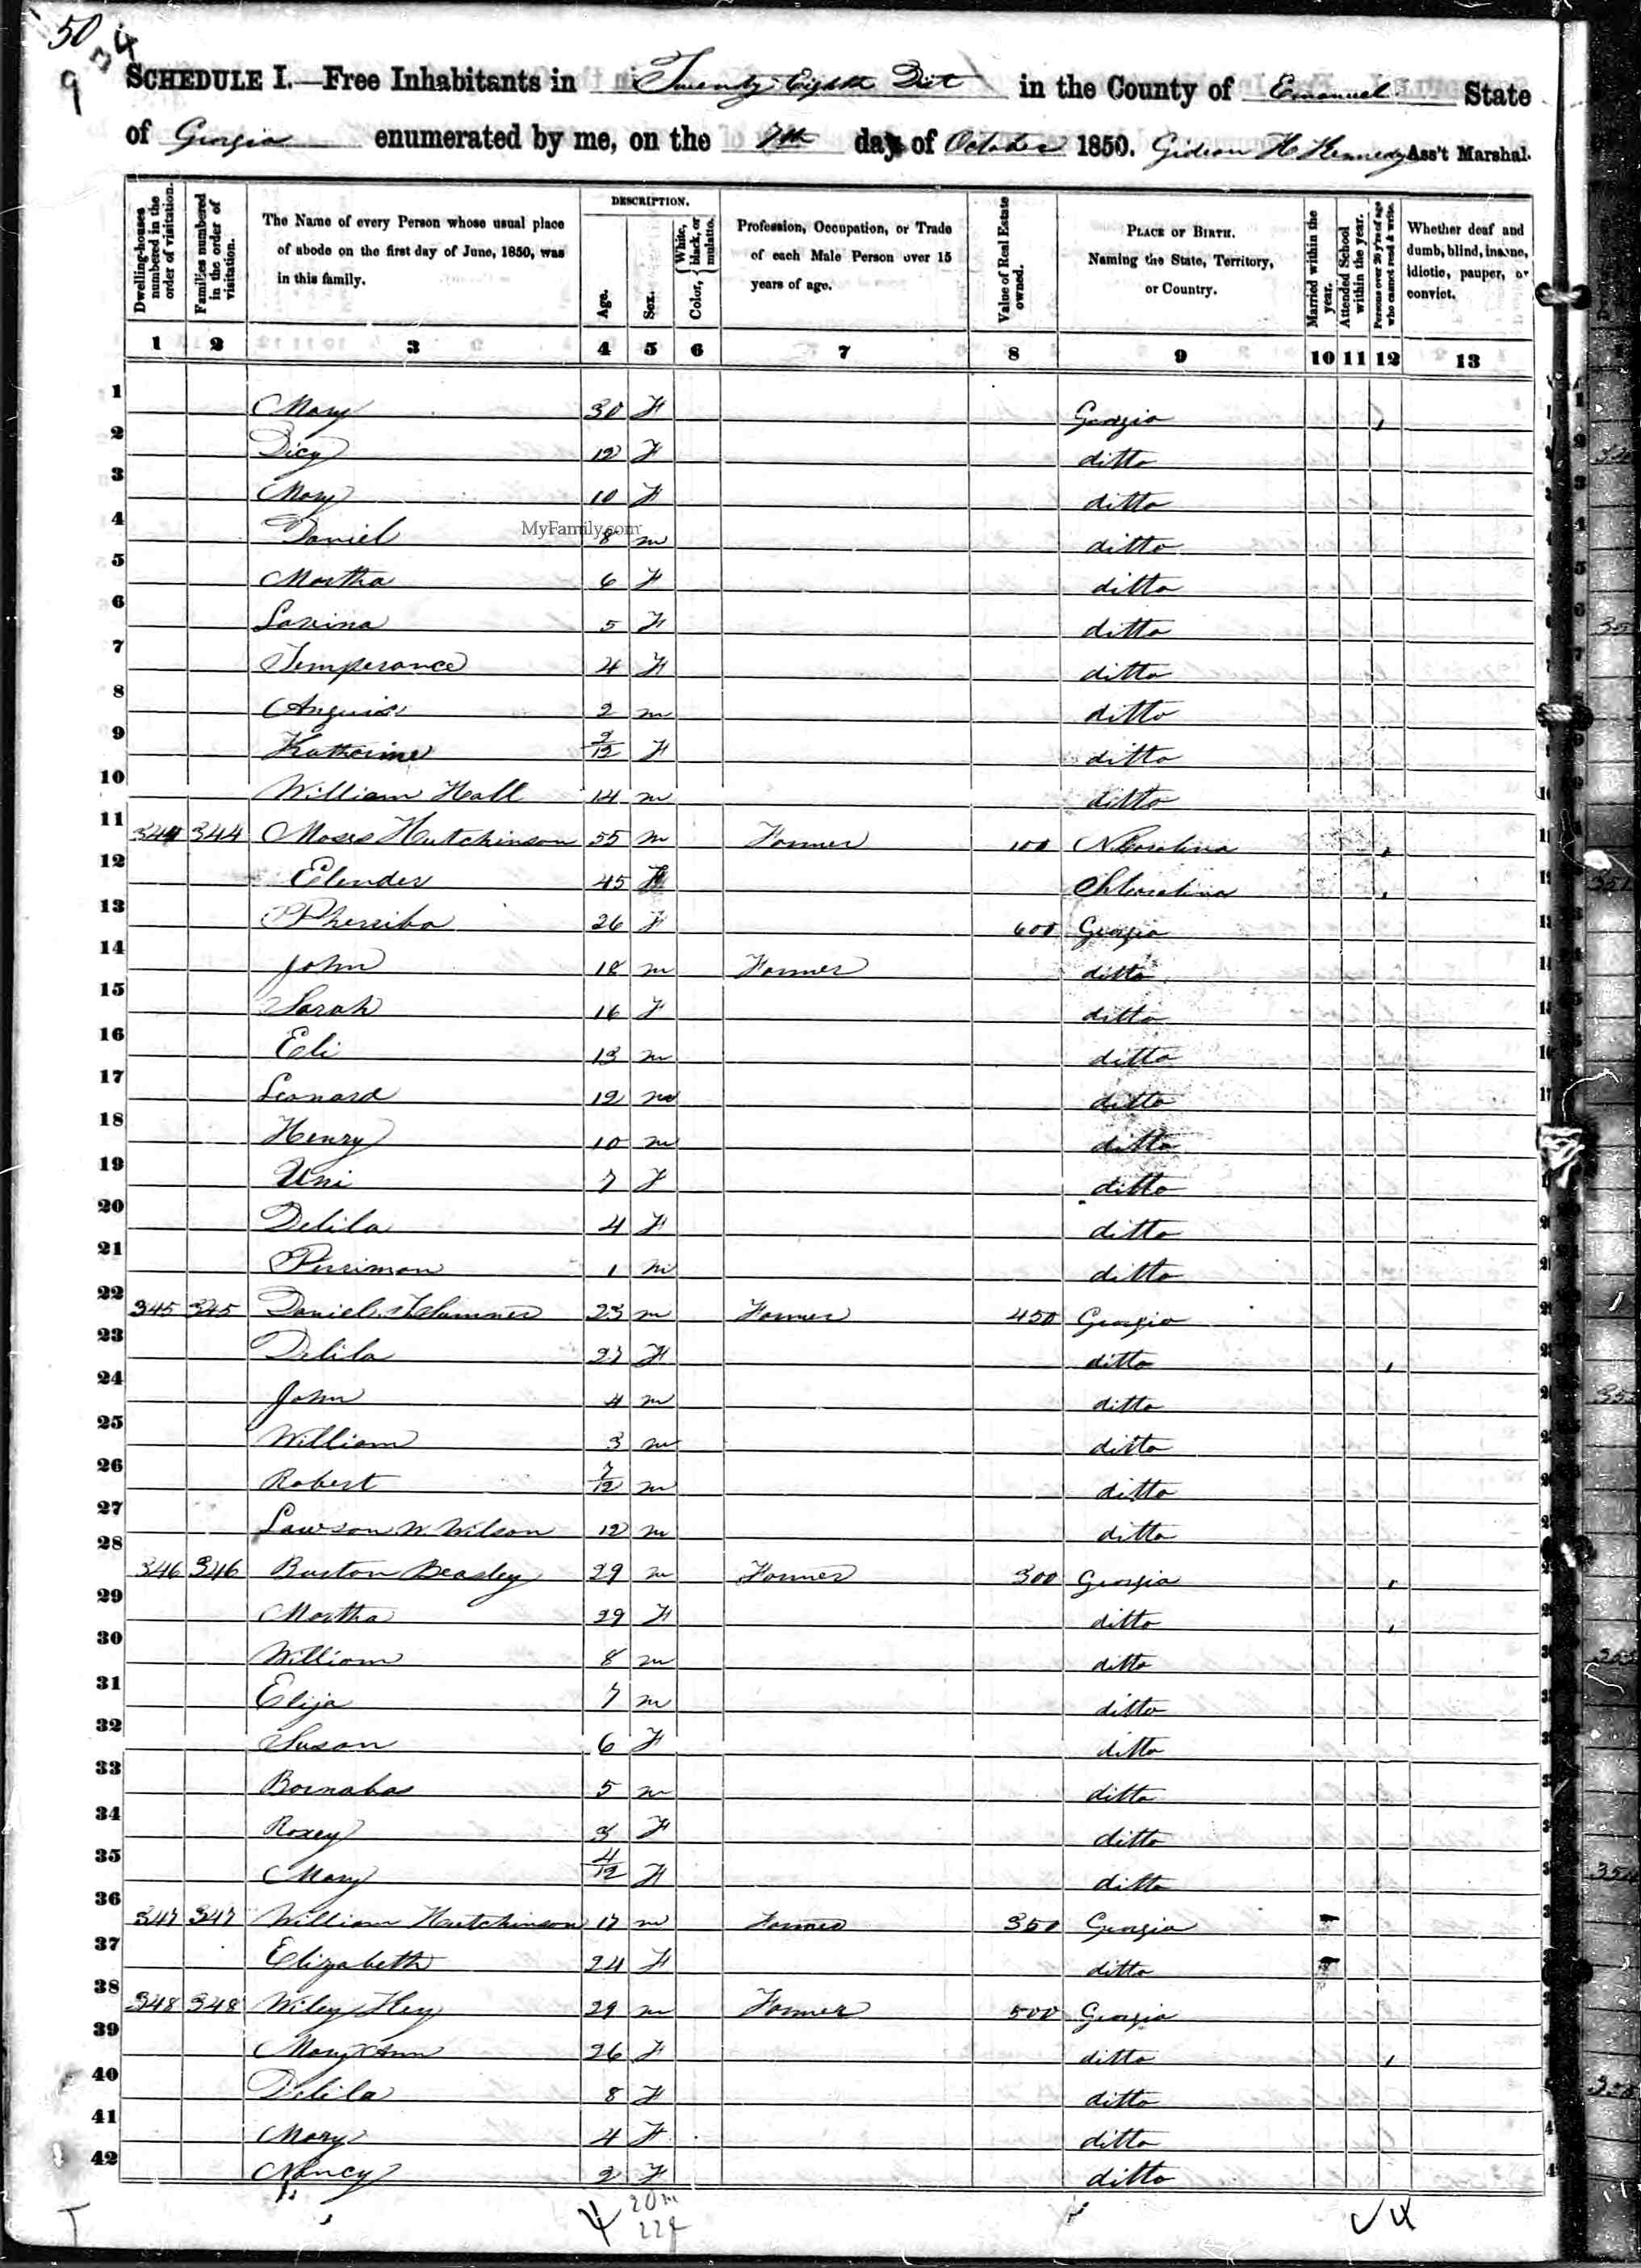 50
9
SCHEDULE I.—Free Inhabitants in Twenty Eighth Dist in the County of Emanuel State
of Georgia enumerated by me, on the 7th day of October 1850. Gideon H Kennedy Ass't Marshal.
Dwelling-houses numbered in the order of visitation.
Families numbered in the order of visitation.
The Name of every Person whose usual place of abode on the first day of June, 1850, was in this family.
DESCRIPTION.
Age.
Sex.
Color, { White, black, or mulatto.
Profession, Occupation, or Trade of each Male Person over 15 years of age.
Value of Real Estate owned.
PLACE OF BIRTH. Naming the State, Territory, or Country.
Married within the year.
Attended School within the year.
Persons over 20 y'rs of age who cannot read & write.
Whether deaf and dumb, blind, insane, idiotic, pauper, or convict.
1 2 3 4 5 6 7 8 9 10 11 12 13
1 Mary 30 F Georgia ,
2 Dicy 12 F ditto
3 Mary 10 F ditto
MyFamily.com
4 Daniel 8 m ditto
5 Martha 6 F ditto
6 Lavina 5 F ditto
7 Temperance 4 F ditto
8 2 m ditto
9 Katherine 2/12 F ditto
10 William Hall 14 m ditto
11 344 344 Moses Hutchinson 55 m Farmer 100 N Carolina ,
12 Elender 45 F S Carolina ,
13 Pherriba 26 F 600 Georgia
14 John 18 m Farmer ditto
15 Sarah 16 F ditto
16 Eli 13 m ditto
17 Leonard 12 m ditto
18 Henry 10 m ditto
19 Uni 7 F ditto
20 Delila 4 F ditto
21 Perriman 1 m ditto
22 345 345 Daniel 23 m Farmer 450 Georgia
23 Delila 27 F ditto ,
24 John 4 m ditto
25 William 3 m ditto
26 Robert 7/12 m ditto
27 Lawson W. Wilson 12 m ditto
28 346 346 Burton Beasley 29 m Farmer 300 Georgia ,
29 Martha 29 F ditto ,
30 William 8 m ditto
31 Elija 7 m ditto
32 Susan 6 F ditto
33 Barnabas 5 m ditto
34 Roxey 3 F ditto
35 Mary 4/12 F ditto
36 347 347 William Hutchinson 17 m Farmer 350 Georgia
37 Elizabeth 24 F ditto
38 348 348 Wiley 29 m Farmer 500 Georgia
39 Mary Ann 26 F ditto ,
40 Delila 8 F ditto
41 Mary 4 F ditto
42 Nancy 2 F ditto
20 m
22 f
4